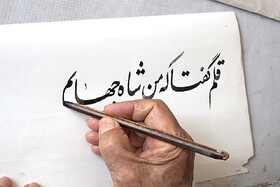 قلم گفتا که من شاه جهانم